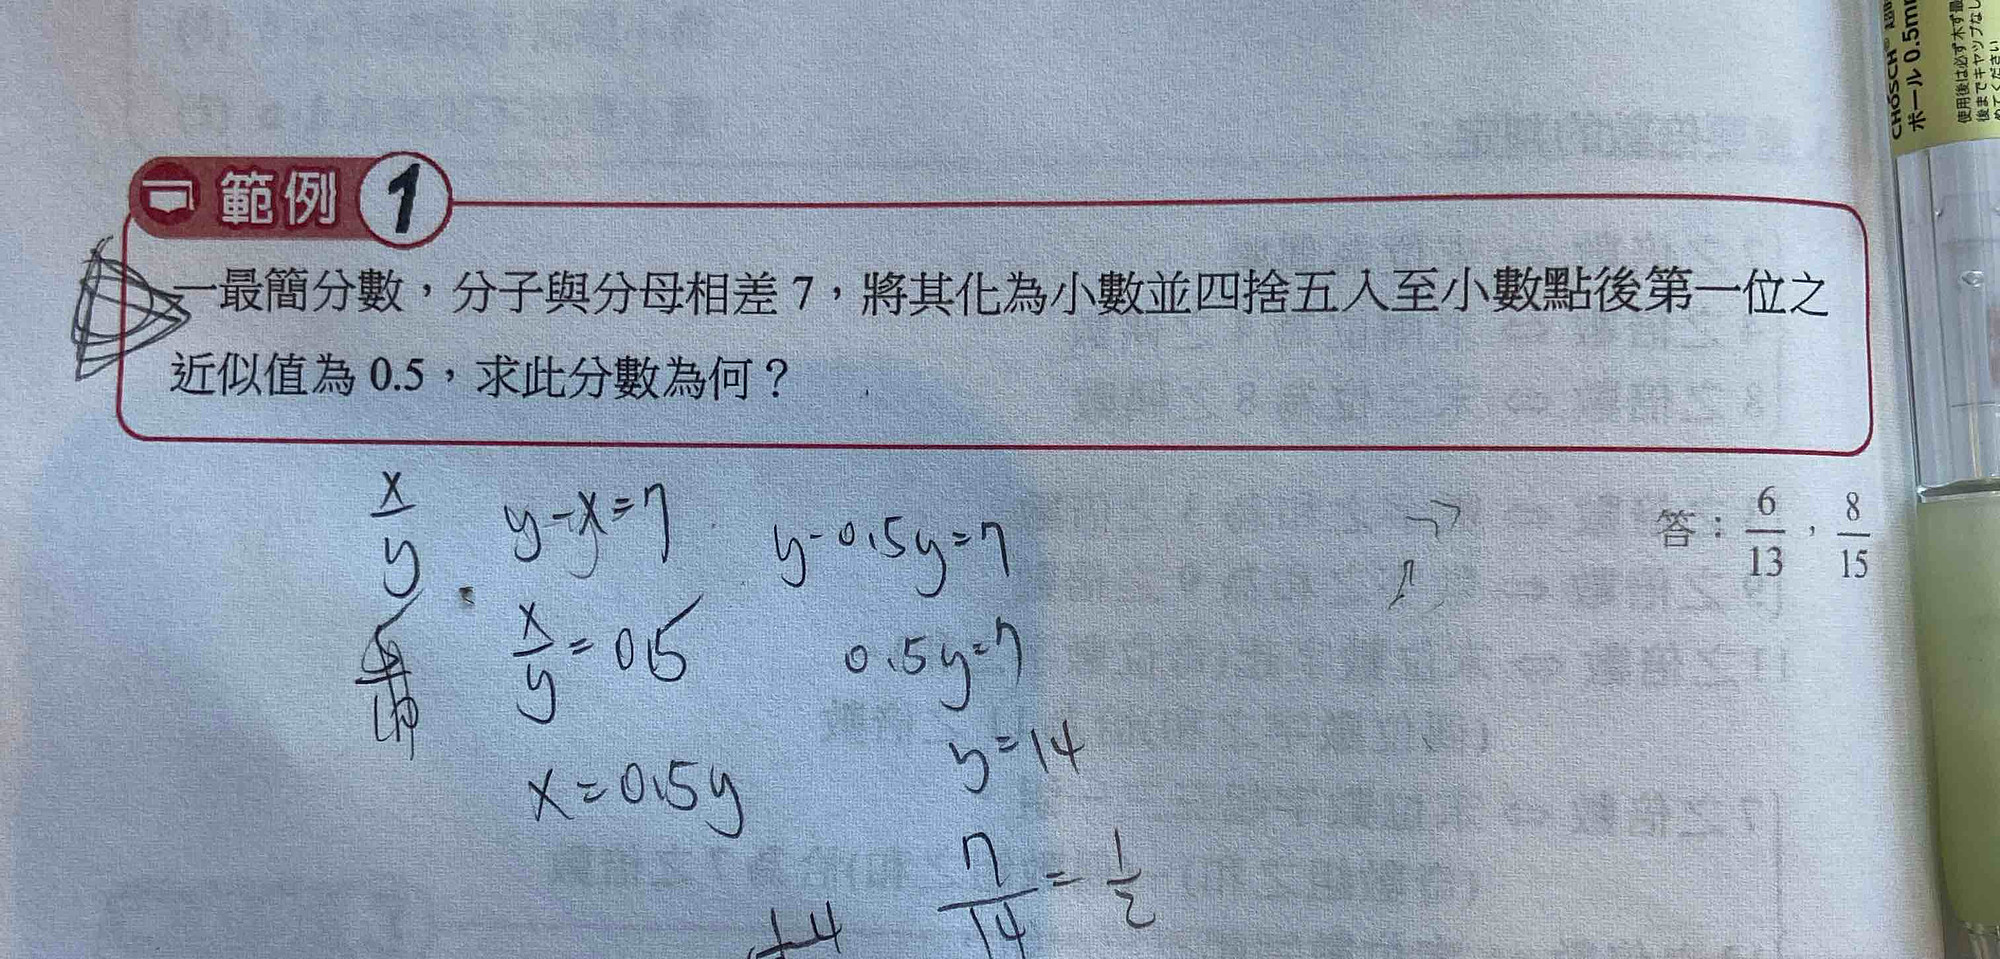 範例 1
一最簡分數，分子與分母相差 7，將其化為小數並四捨五入至小數點後第一位之
近似值為 0.5，求此分數為何？
答：6/13，8/15
x/y
y-x=7
x/y=0.5
x=0.5y
y-0.5y=7
0.5y=7
y=14
7/14=1/2
CHOSCH
ボール 0.5mm
使用後は必ず
後までキャップ
ください